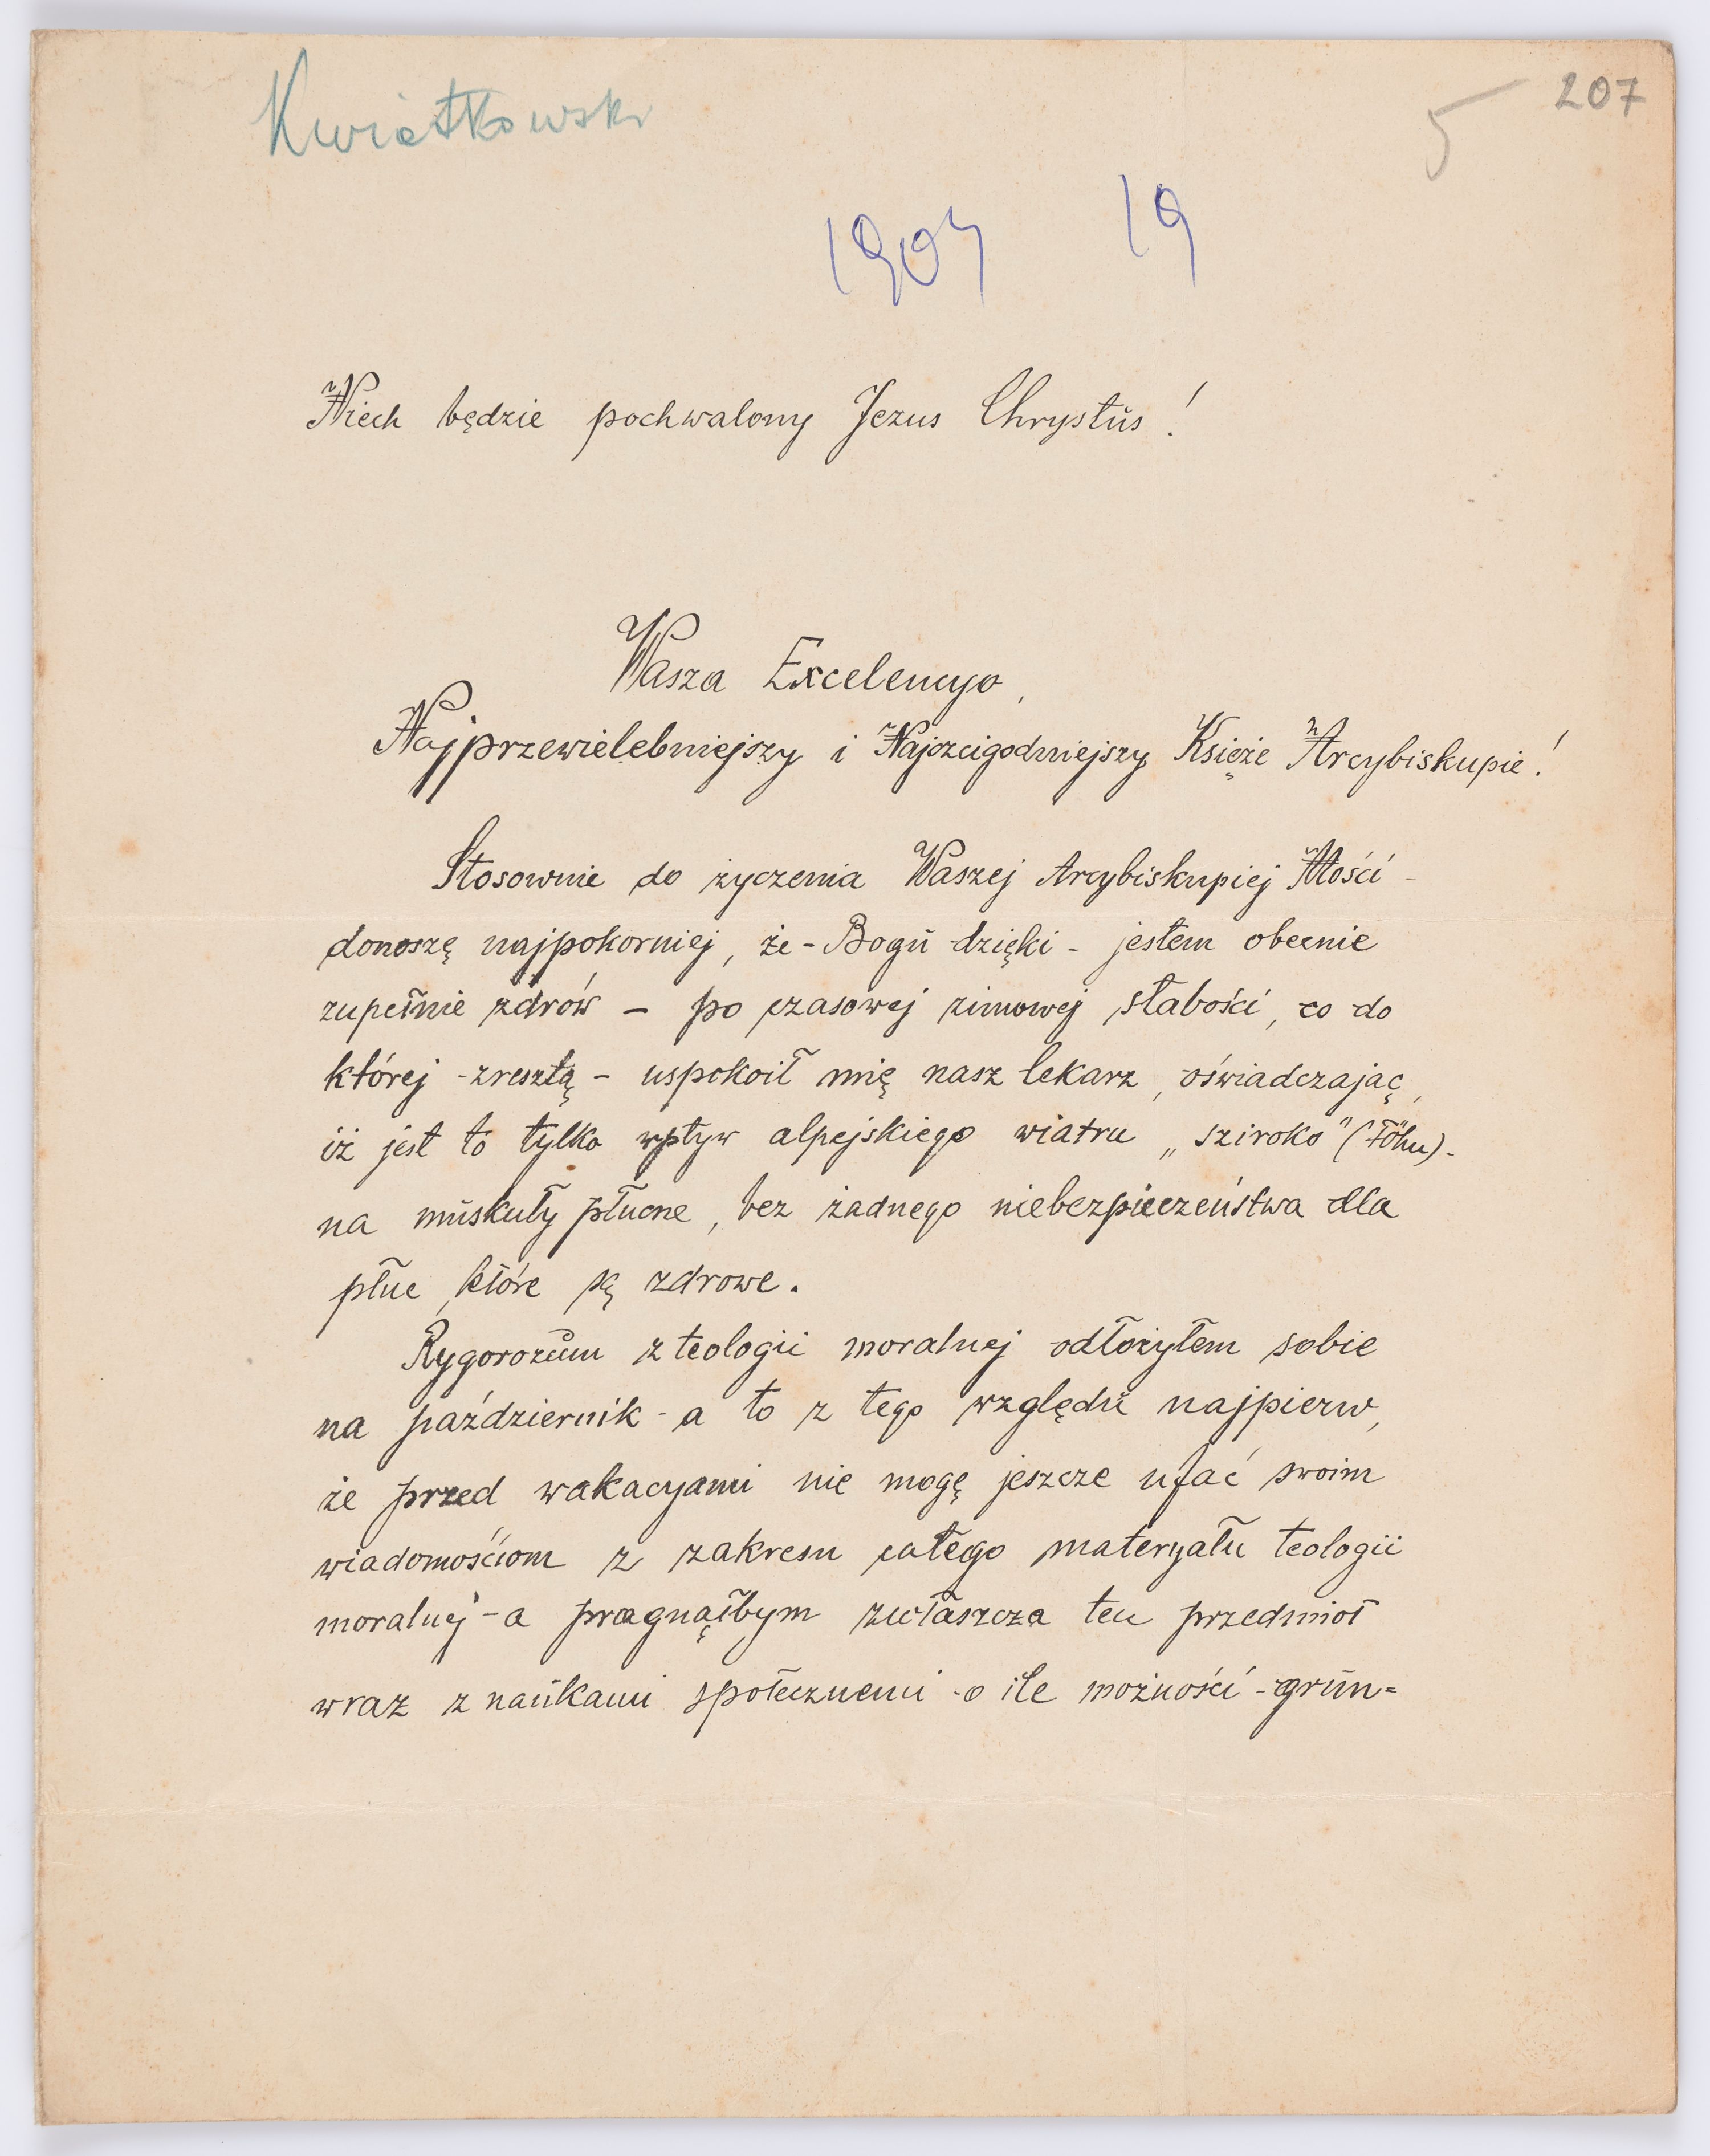 Kwiatkowski
5 207
1904 19
Niech będzie pochwalony Jezus Chrystus!
Wasza Excelencyo,
Najprzewielebniejszy i Najczcigodniejszy Księże Arcybiskupie!
Stosownie do życzenia Waszej Arcybiskupiej Mości -
donoszę najpokorniej, że - Bogu dzięki - jestem obecnie
zupełnie zdrów - po czasowej zimowej słabości, co do
której - zresztą - uspokoił mię nasz lekarz, oświadczając,
iż jest to tylko wpływ alpejskiego wiatru „sziroko" (Föhn) -
na muskuły płucne, bez żadnego niebezpieczeństwa dla
płuc, które są zdrowe.
Rygorozum z teologii moralnej odłożyłem sobie
na październik - a to z tego względu najpierw,
że przed wakacyami nie mogę jeszcze ufać swoim
wiadomościom z zakresu całego materyału teologii
moralnej - a pragnąłbym zwłaszcza ten przedmiot
wraz z naukami społecznemi - o ile możności - grun=